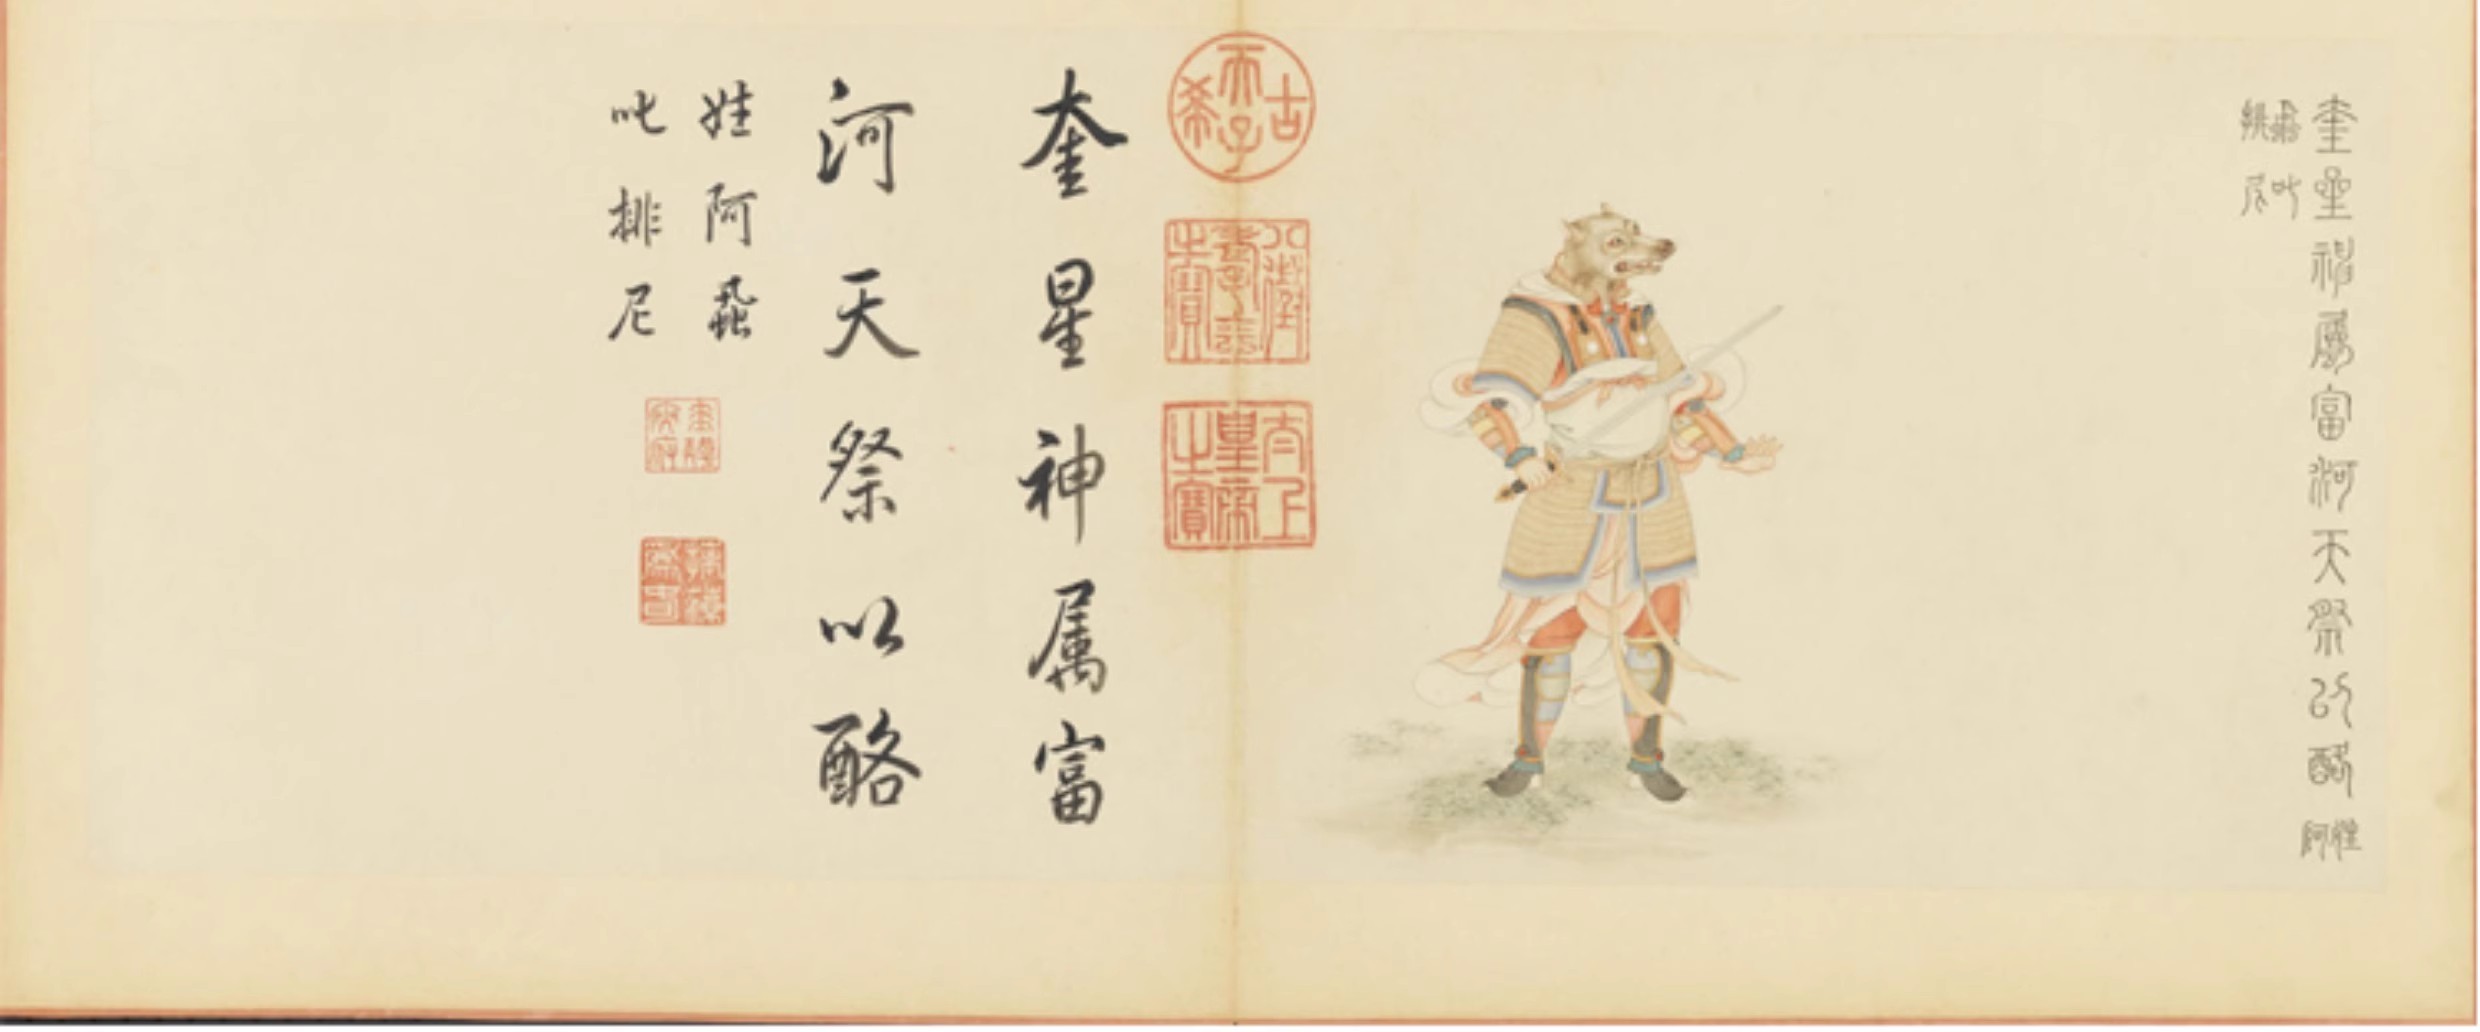 奎星神属富河天祭以酪
姓阿
蝨叱
排尼
古希天子
八徵耄念之寶
太上皇帝之寶
奎星神属富
河天祭以酪
姓阿蝨
叱排尼